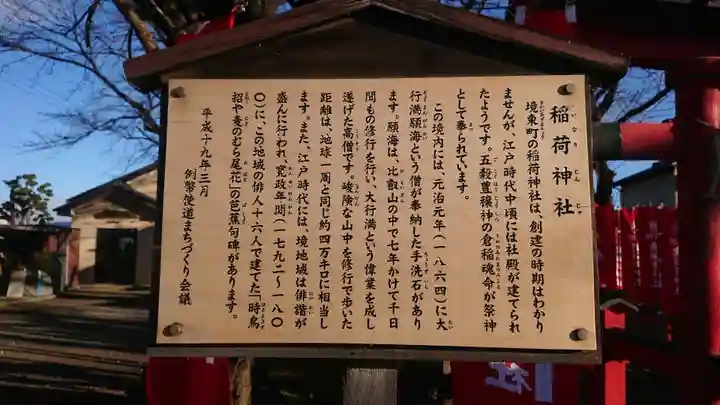 稲荷神社
境東町の稲荷神社は、創建の時期はわかり
ませんが、江戸時代中頃には社殿が建てられ
たようです。五穀豊穣神の倉稲魂命が祭神
として奉られています。
この境内には、元治元年(一八六四)に大
行満願海という僧が奉納した手洗石があり
ます。願海は、比叡山の中で七年かけて千日
間もの修行を行い、大行満という偉業を成し
遂げた高僧です。峻険な山中を修行で歩いた
距離は、地球一周と同じ約四万キロに相当し
ます。また、江戸時代には、境地域は俳諧が
盛んに行われ、寛政年間(一七九二〜一八〇
〇)に、この地域の俳人十六人で建てた「時鳥
招や麦のむら尾花」の芭蕉句碑があります。
平成十九年三月
例幣使道まちづくり会議
社